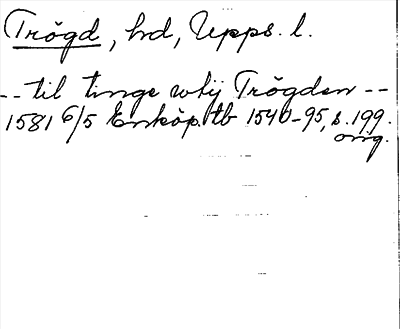 Trögd, hd, Upps. l.
-- til tinge vthij Trögden --
1581 6/5 Enköp. tb 1540-95, s. 199.
orig.